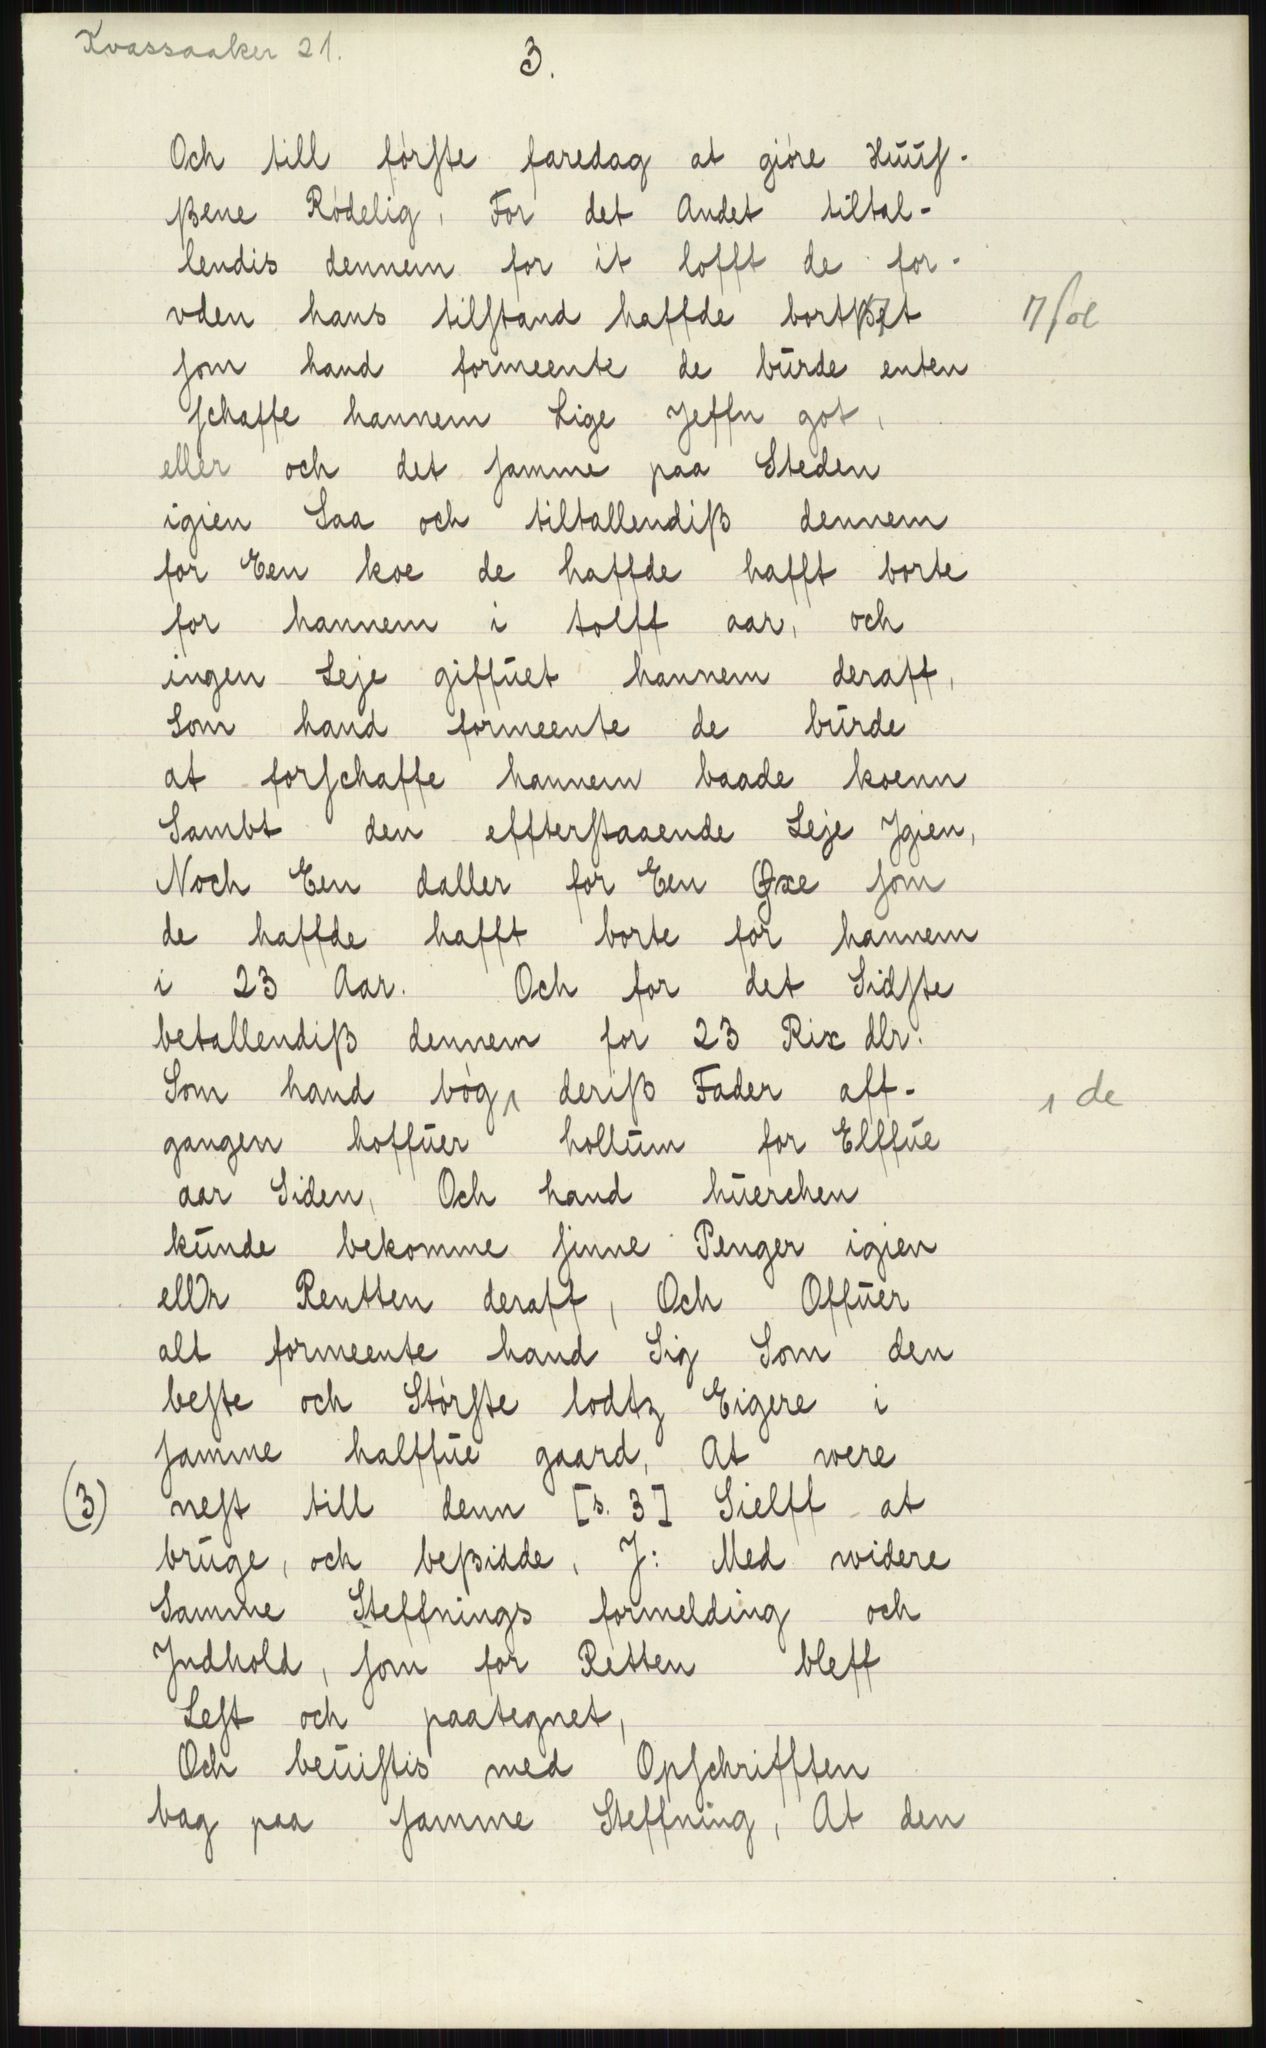 Kvassaaker 21.
3.
Och till førſte faredag at giøre Huuſ-
ßene Rødelig, For det Andet tiltal-
lendis dennem for it lofft de for-
vden hans tilſtand haffde bortßet
ſom hand formeente de bürde enten
ſchaffe hannem Lige Jeffn got,
eller och det ſamme paa Steden
igien Saa och tiltallendiß dennem
for Een koe de haffde hafft borte
for hannem i tolff aar, och
ingen Leje giffüet hannem deraff,
Som hand formeente de bürde
at forſchaffe hannem baade koenn
Sambt den effterſtaaende Leje Jgien,
Noch Een daller for Een Oxe ſom
de haffde hafft borte for hannem
i 23 Aar. Och for det Sidſte
betallendiß dennem for 23 Rix dlr.
Som hand bøg, deriß Fader aff-
, de
gangen hoffüer hollüm for Elffüe
aar Siden, Och hand hüerchen
künde bekomme ſinne Penger igien
ellr Rentten deraff, Och Offüer
alt formeente hand Sig Som den
beſte och Størſte lodtz Eigere i
ſamme halffüe gaard, At were
(3) neſt till denn [s. 3] Sielff at
brüge, och beßidde, J: Med widere
Samme Steffnings formelding och
Jndhold, ſom for Retten bleff
Leſt och paategnet,
Och beüiſtis med Opſchrifften
bag paa ſamme Steffning, At den